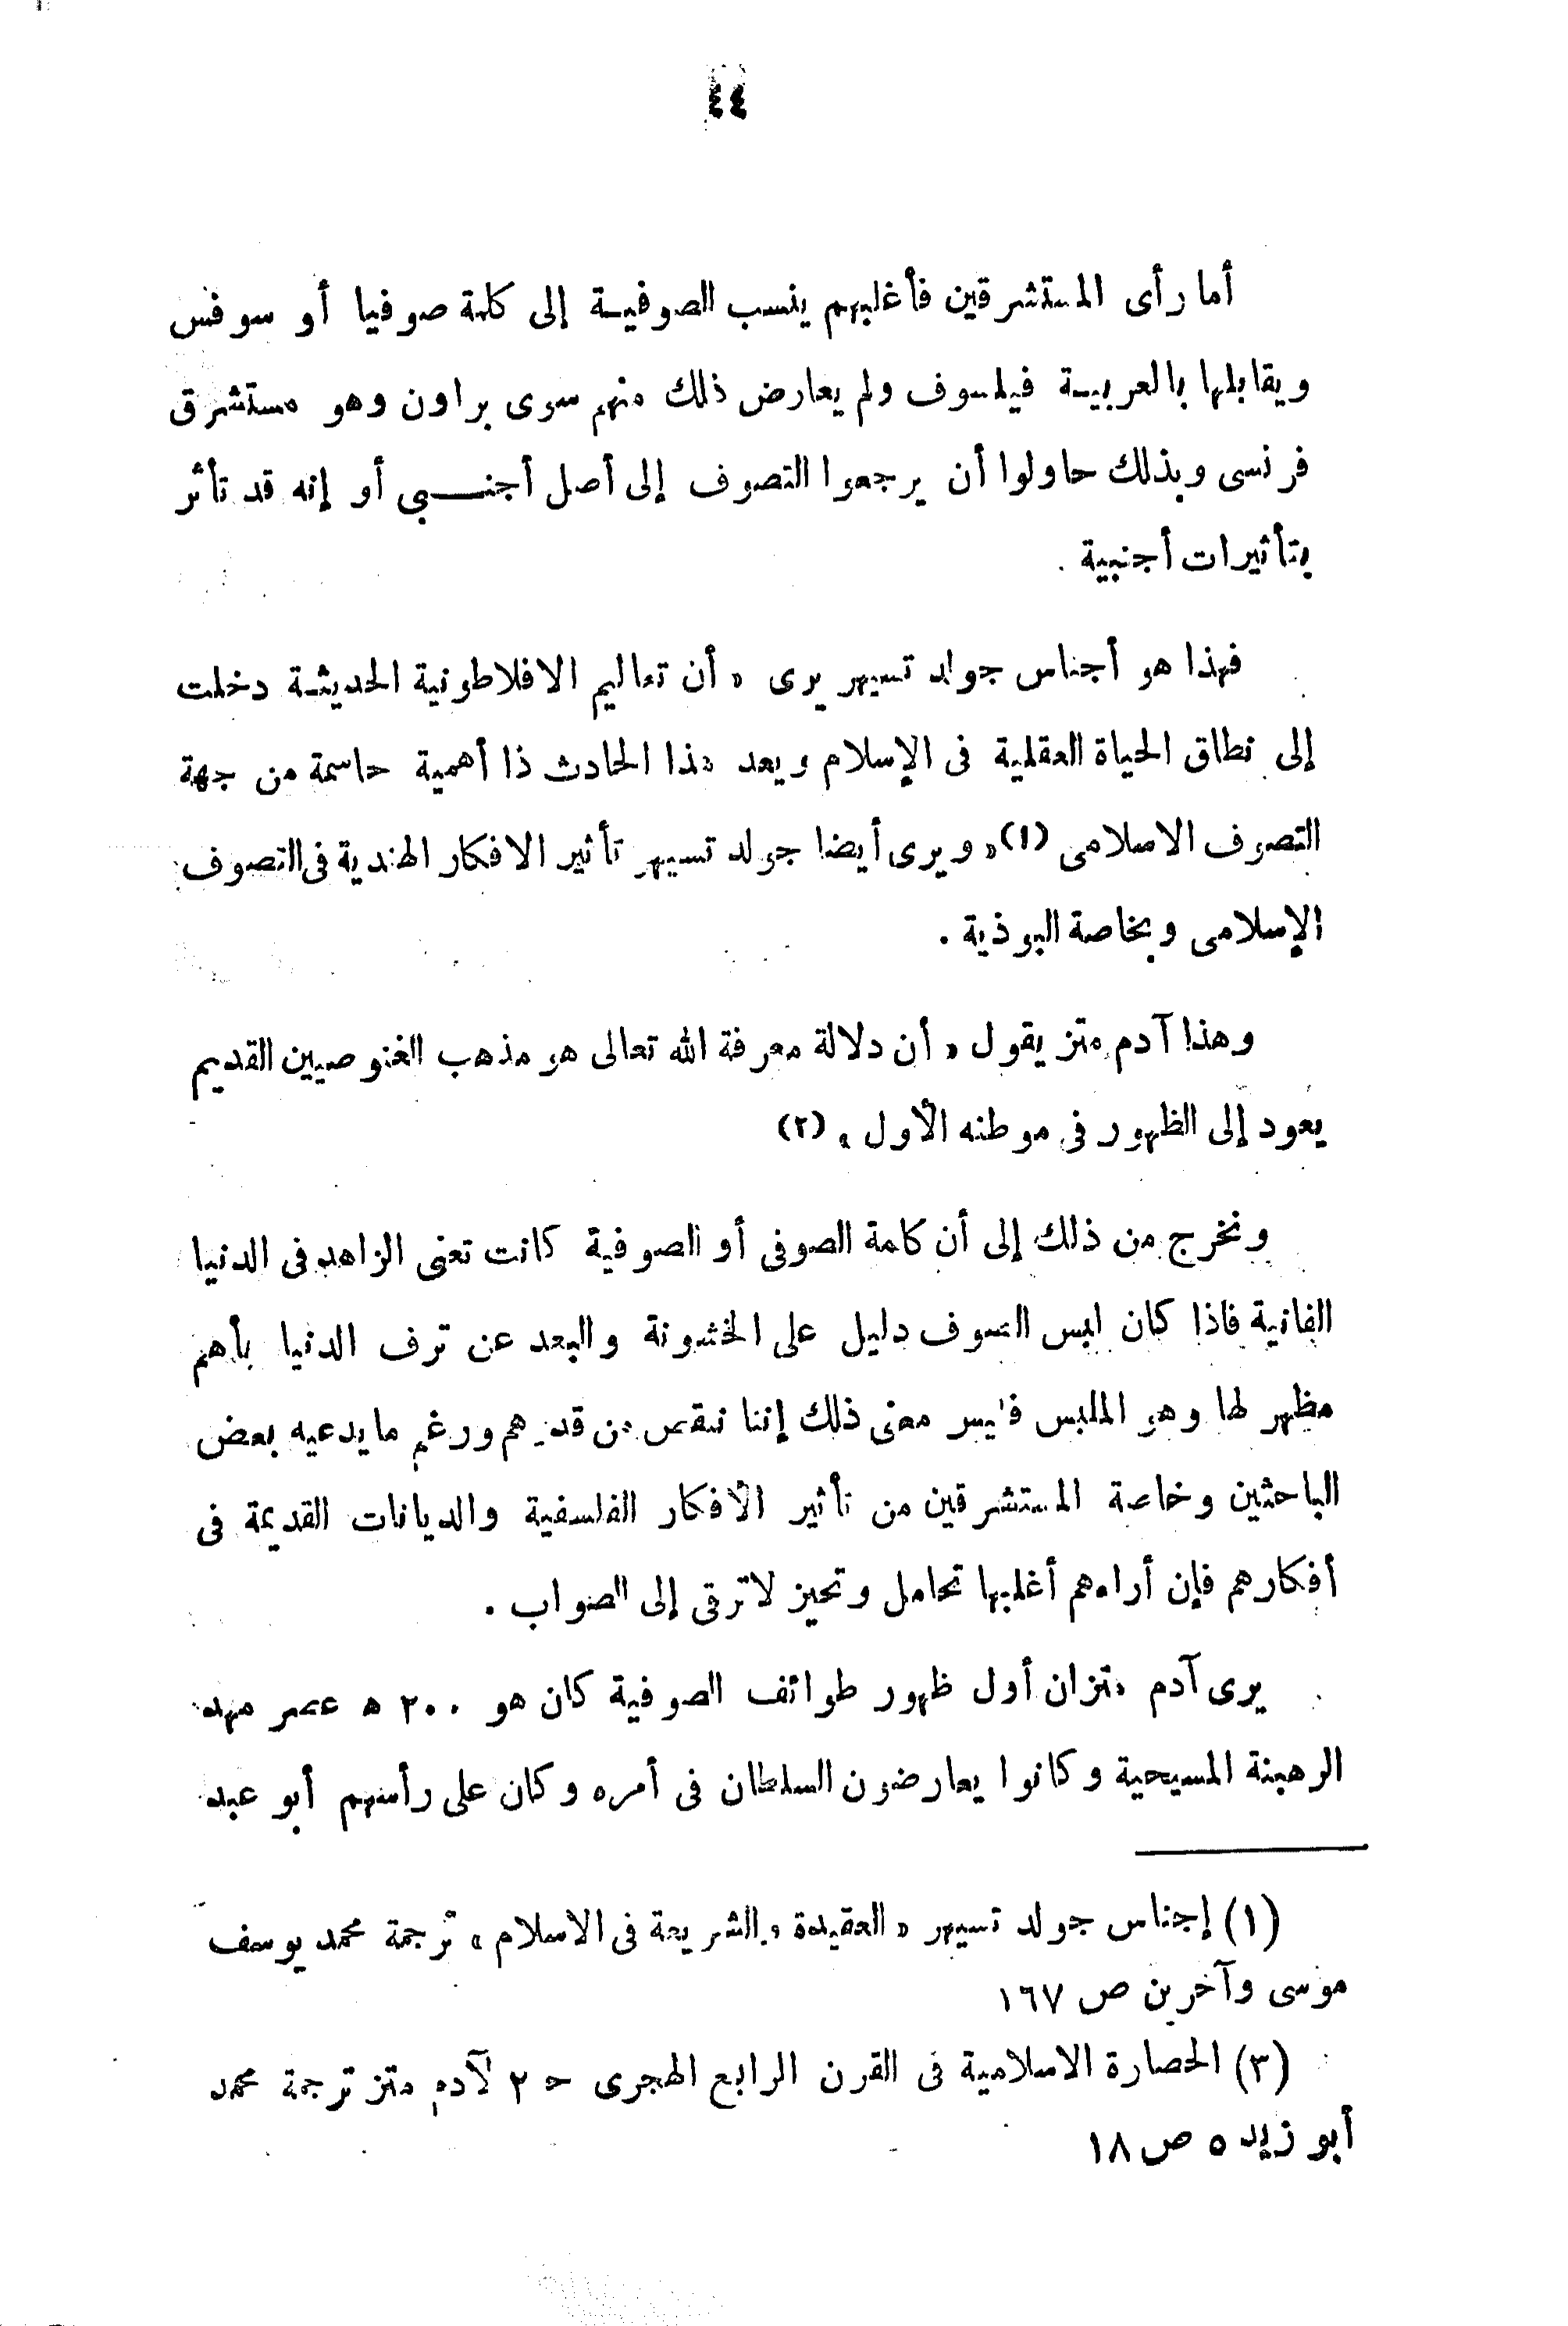 ٤٤
أما رأى المستشرقين فأغلبهم ينسب الصوفية إلى كلمة صوفيا أو سوفس
ويقابلها بالعربية فيلسوف ولم يعارض ذلك منهم سوى براون وهو مستشرق
فرنسى وبذلك حاولوا أن يرجعوا التصوف إلى أصل أجنبي أو إنه قد تأثر
بتأثيرات أجنبية .
فهذا هو أجناس جولد تسيهر يرى « أن تعاليم الافلاطونية الحديثة دخلت
إلى نطاق الحياة العقلية فى الإسلام ويعد هذا الحادث ذا أهمية حاسمة من جهة
التصوف الاسلامى (١)» ويرى أيضا جولد تسيهر تأثير الافكار الهندية فى التصوف
الإسلامى وبخاصة البوذية .
وهذا آدم متز يقول « أن دلالة معرفة الله تعالى هو مذهب الغنوصيين القديم
يعود إلى الظهور فى موطنه الأول » (٢)
ونخرج من ذلك إلى أن كلمة الصوفى أو الصوفية كانت تعنى الزاهد فى الدنيا
الفانية فاذا كان لبس الصوف دليل على الخشونة والبعد عن ترف الدنيا بأهم
مظهر لها وهو الملبس فليس معنى ذلك إننا ننقص من قدرهم ورغم ما يدعيه بعض
الباحثين وخاصة المستشرقين من تأثير الأفكار الفلسفية والديانات القديمة فى
أفكارهم فإن أراءهم أغلبها تحامل وتحيز لا ترقى إلى الصواب .
يرى آدم متزان أول ظهور طوائف الصوفية كان هو ٢٠٠ ه عصر مهد
الرهبنة المسيحية وكانوا يعارضون السلطان فى أمره وكان على رأسهم أبو عبد
(١) إجناس جولد تسيهر « العقيدة والشريعة فى الاسلام » ترجمة محمد يوسف
موسى وآخرين ص ١٦٧
(٣) الحصارة الاسلامية فى القرن الرابع الهجرى ح ٢ لآدم متز ترجمة محمد
أبو زيد ٥ ص ١٨